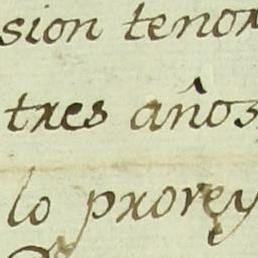 sion tenor
tres años
lo prorey